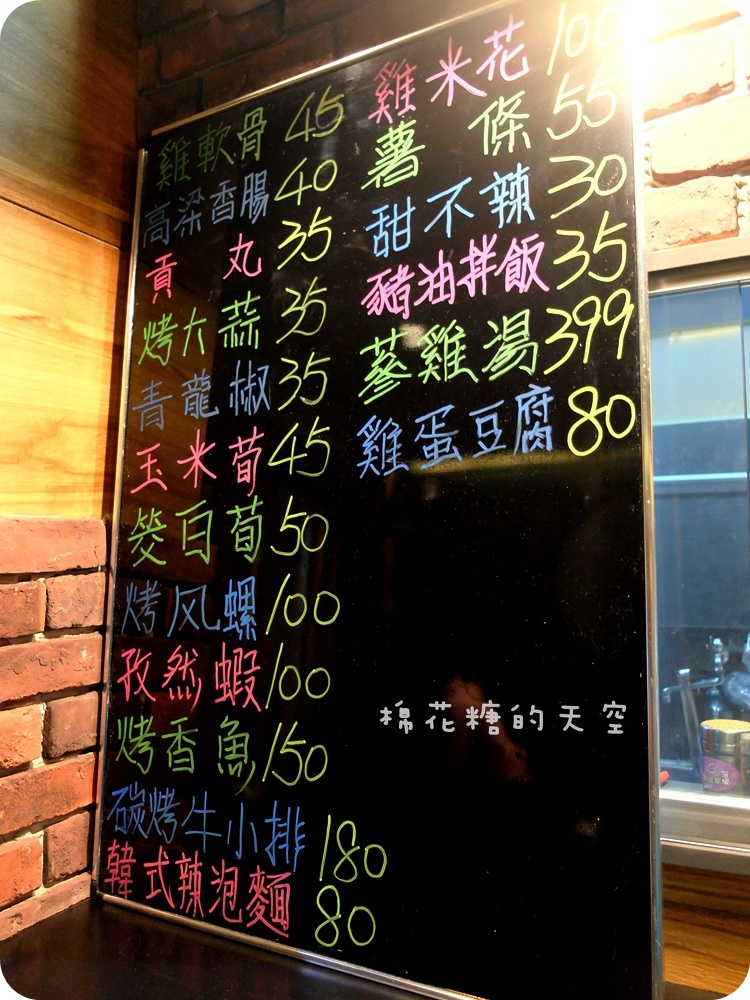 雞軟骨 45
高梁香腸 40
貢丸 35
烤大蒜 35
青龍椒 35
玉米筍 45
筊白荀 50
烤风螺 100
孜然蝦 100
烤香魚 150
碳烤牛小排 180
韓式辣泡麵 80
雞米花 100
薯條 55
甜不辣 30
豬油拌飯 35
蔘雞湯 399
雞蛋豆腐 80
棉花糖的天空